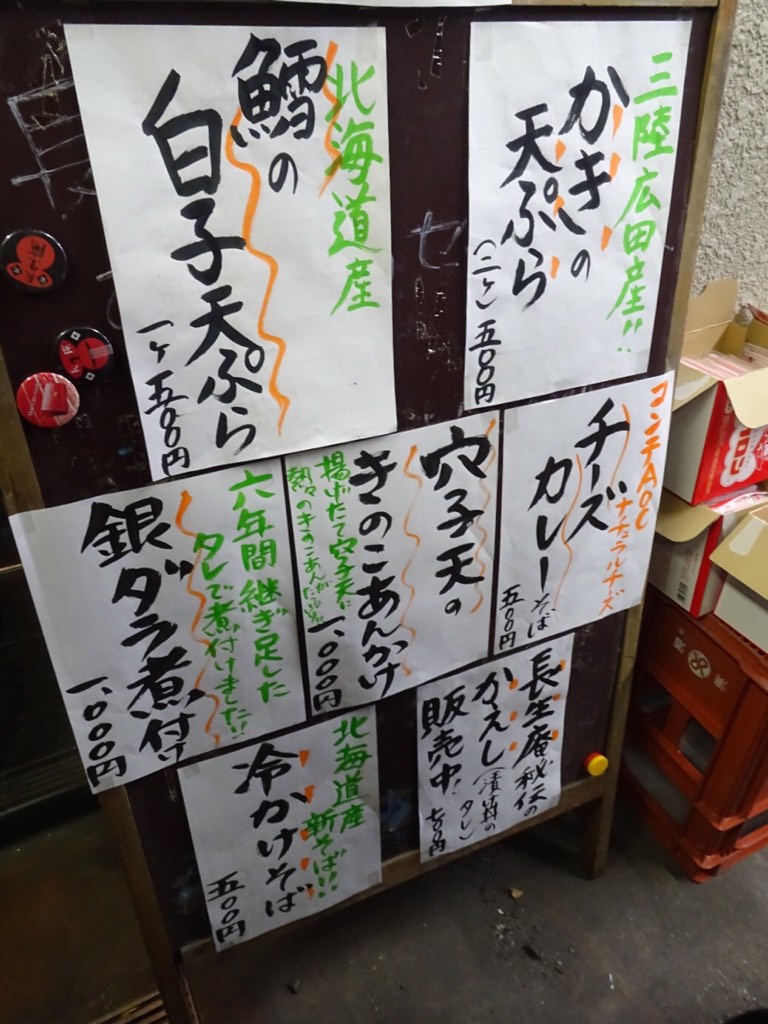 三陸広田産!!
かきの
天ぷら
(二ヶ)五〇〇円
北海道産
鱈の
白子天ぷら
一ヶ 五〇〇円
コンテAOC
ナチュラルチーズ
チーズ
カレーそば
五〇〇円
穴子天の
きのこあんかけ
揚げたて穴子天に
熱々のきのこあんが
一、〇〇〇円
六年間継ぎ足した
タレで煮付けました!!
銀ダラ煮付け
一、〇〇〇円
長生庵秘伝の
かえし(漬丼のタレ)
販売中!
七〇〇円
北海道産
新そば!!
冷かけそば
五〇〇円
セ